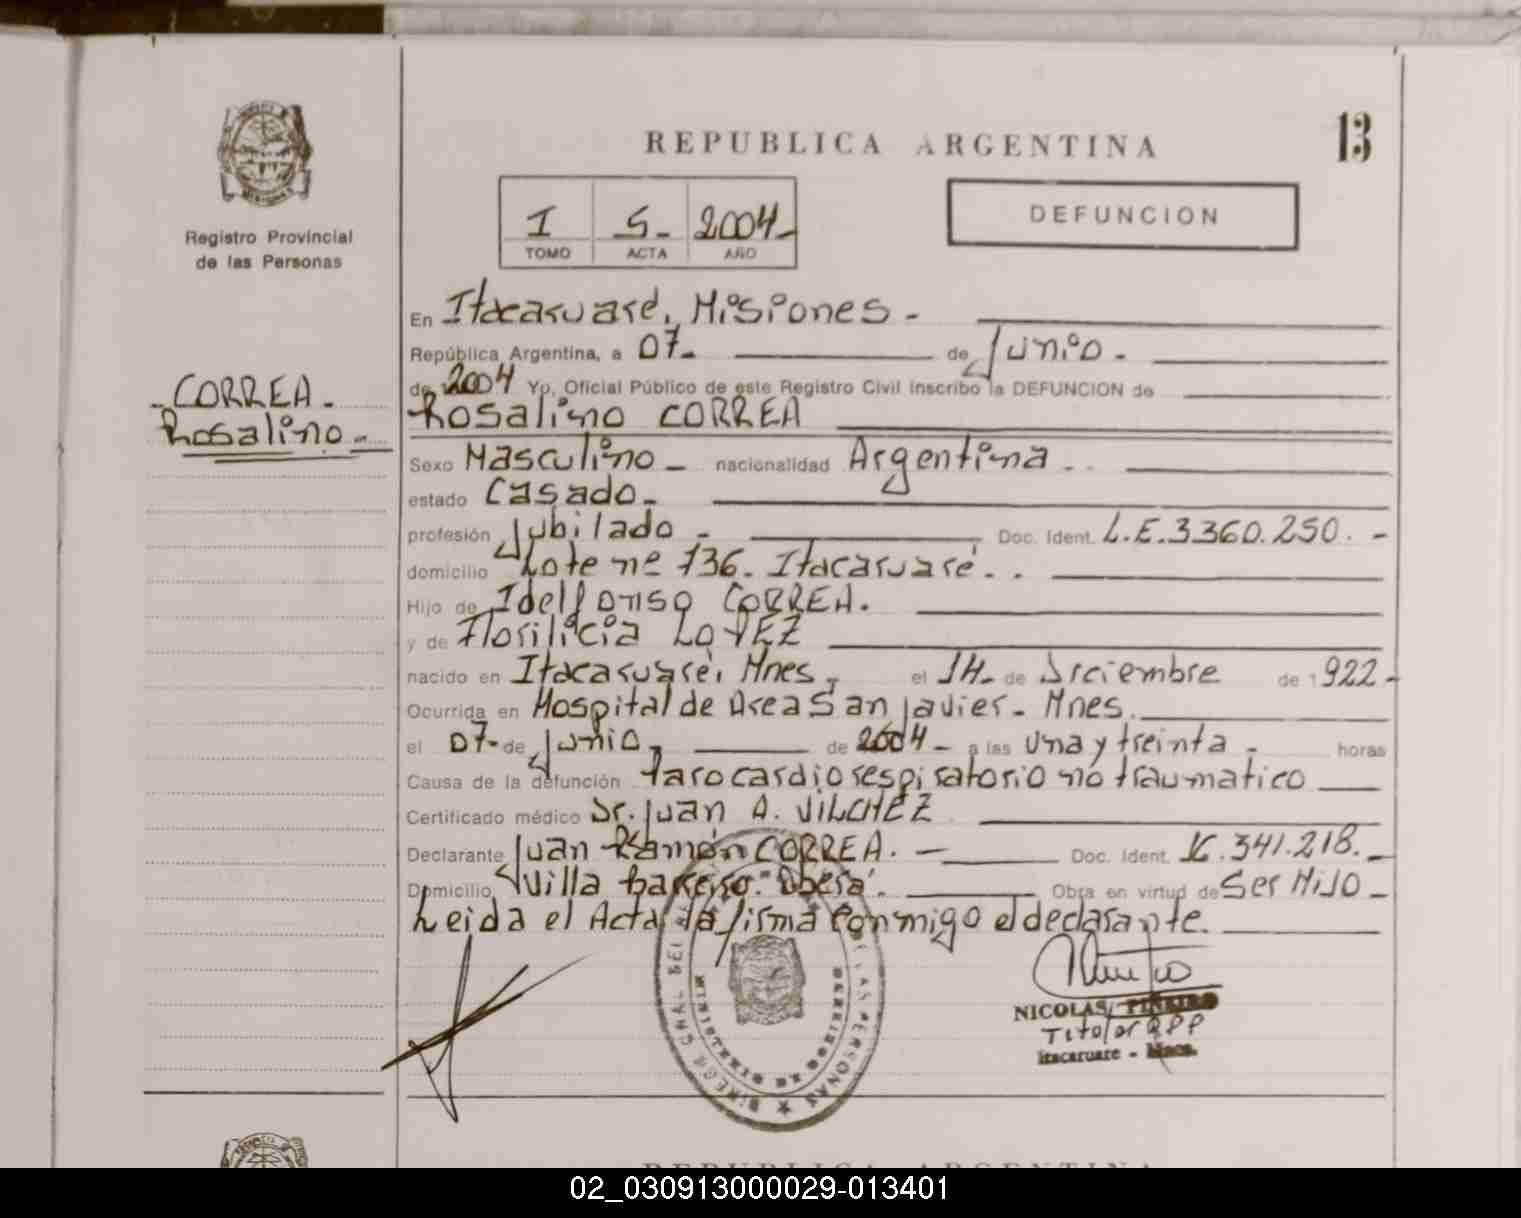 REPUBLICA ARGENTINA
13
Registro Provincial
de las Personas
I 5- 2004-
TOMO ACTA AÑO
DEFUNCION
CORREA -
Rosalino -
En Itacaruaré, Misiones -
República Argentina, a 07- de Junio -
de 2004 Yo, Oficial Público de este Registro Civil inscribo la DEFUNCION de
Rosalino CORREA
Sexo Masculino - nacionalidad Argentina - -
estado Casado -
profesión Jubilado - Doc. Ident. L.E. 3.360.250. -
domicilio Lote nº 136. Itacaruaré. .
Hijo de Idelfonso CORREA.
y de Florilicia LOPEZ
nacido en Itacaruaré, Mnes, el 14- de Diciembre de 1922-
Ocurrida en Hospital de Area San Javier - Mnes.
el 07- de Junio, de 2004 - a las una y treinta - horas
Causa de la defunción Parocardiorespiratorio no traumatico
Certificado médico Dr. Juan A. VILCHEZ
Declarante Juan Ramón CORREA. - Doc. Ident. 16.341.218. -
Domicilio Villa Barreyro. Oberá. Obra en virtud de Ser Hijo -
Leida el Acta la firma conmigo el declarante.
NICOLAS PIÑEIRO
Titular RPP
Itacaruare - Mnes.
DIRECC GRAL DEL DE LAS PERSONAS
MINISTERIO DE GOBIERNO
REPUBLICA ARGENTINA
02_030913000029-013401